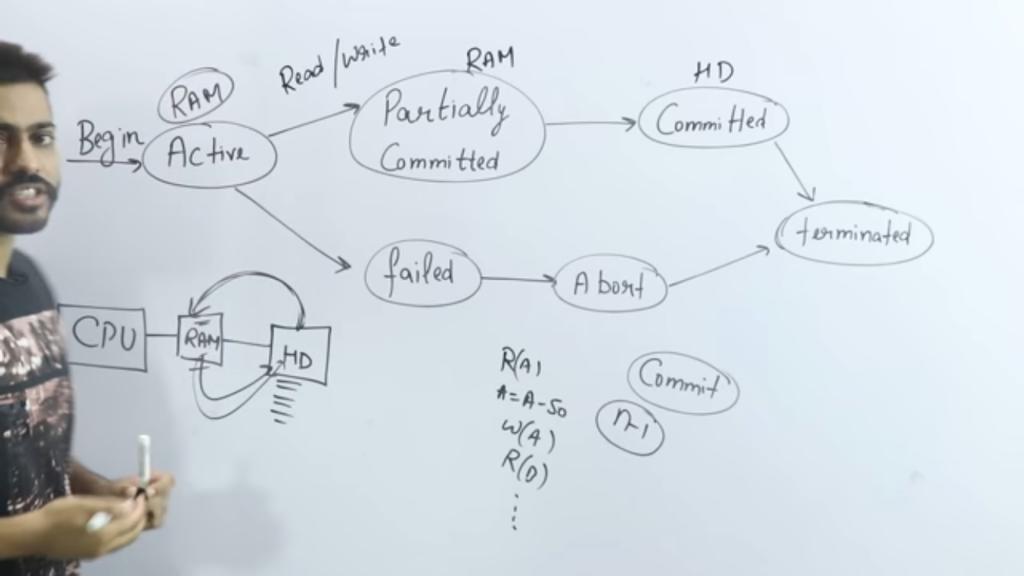 Begin
RAM
Active
Read/write
RAM
Partially
Committed
HD
Committed
terminated
failed
Abort
CPU
RAM
HD
R(A)
A=A-50
W(A)
R(D)
Commit
n-1